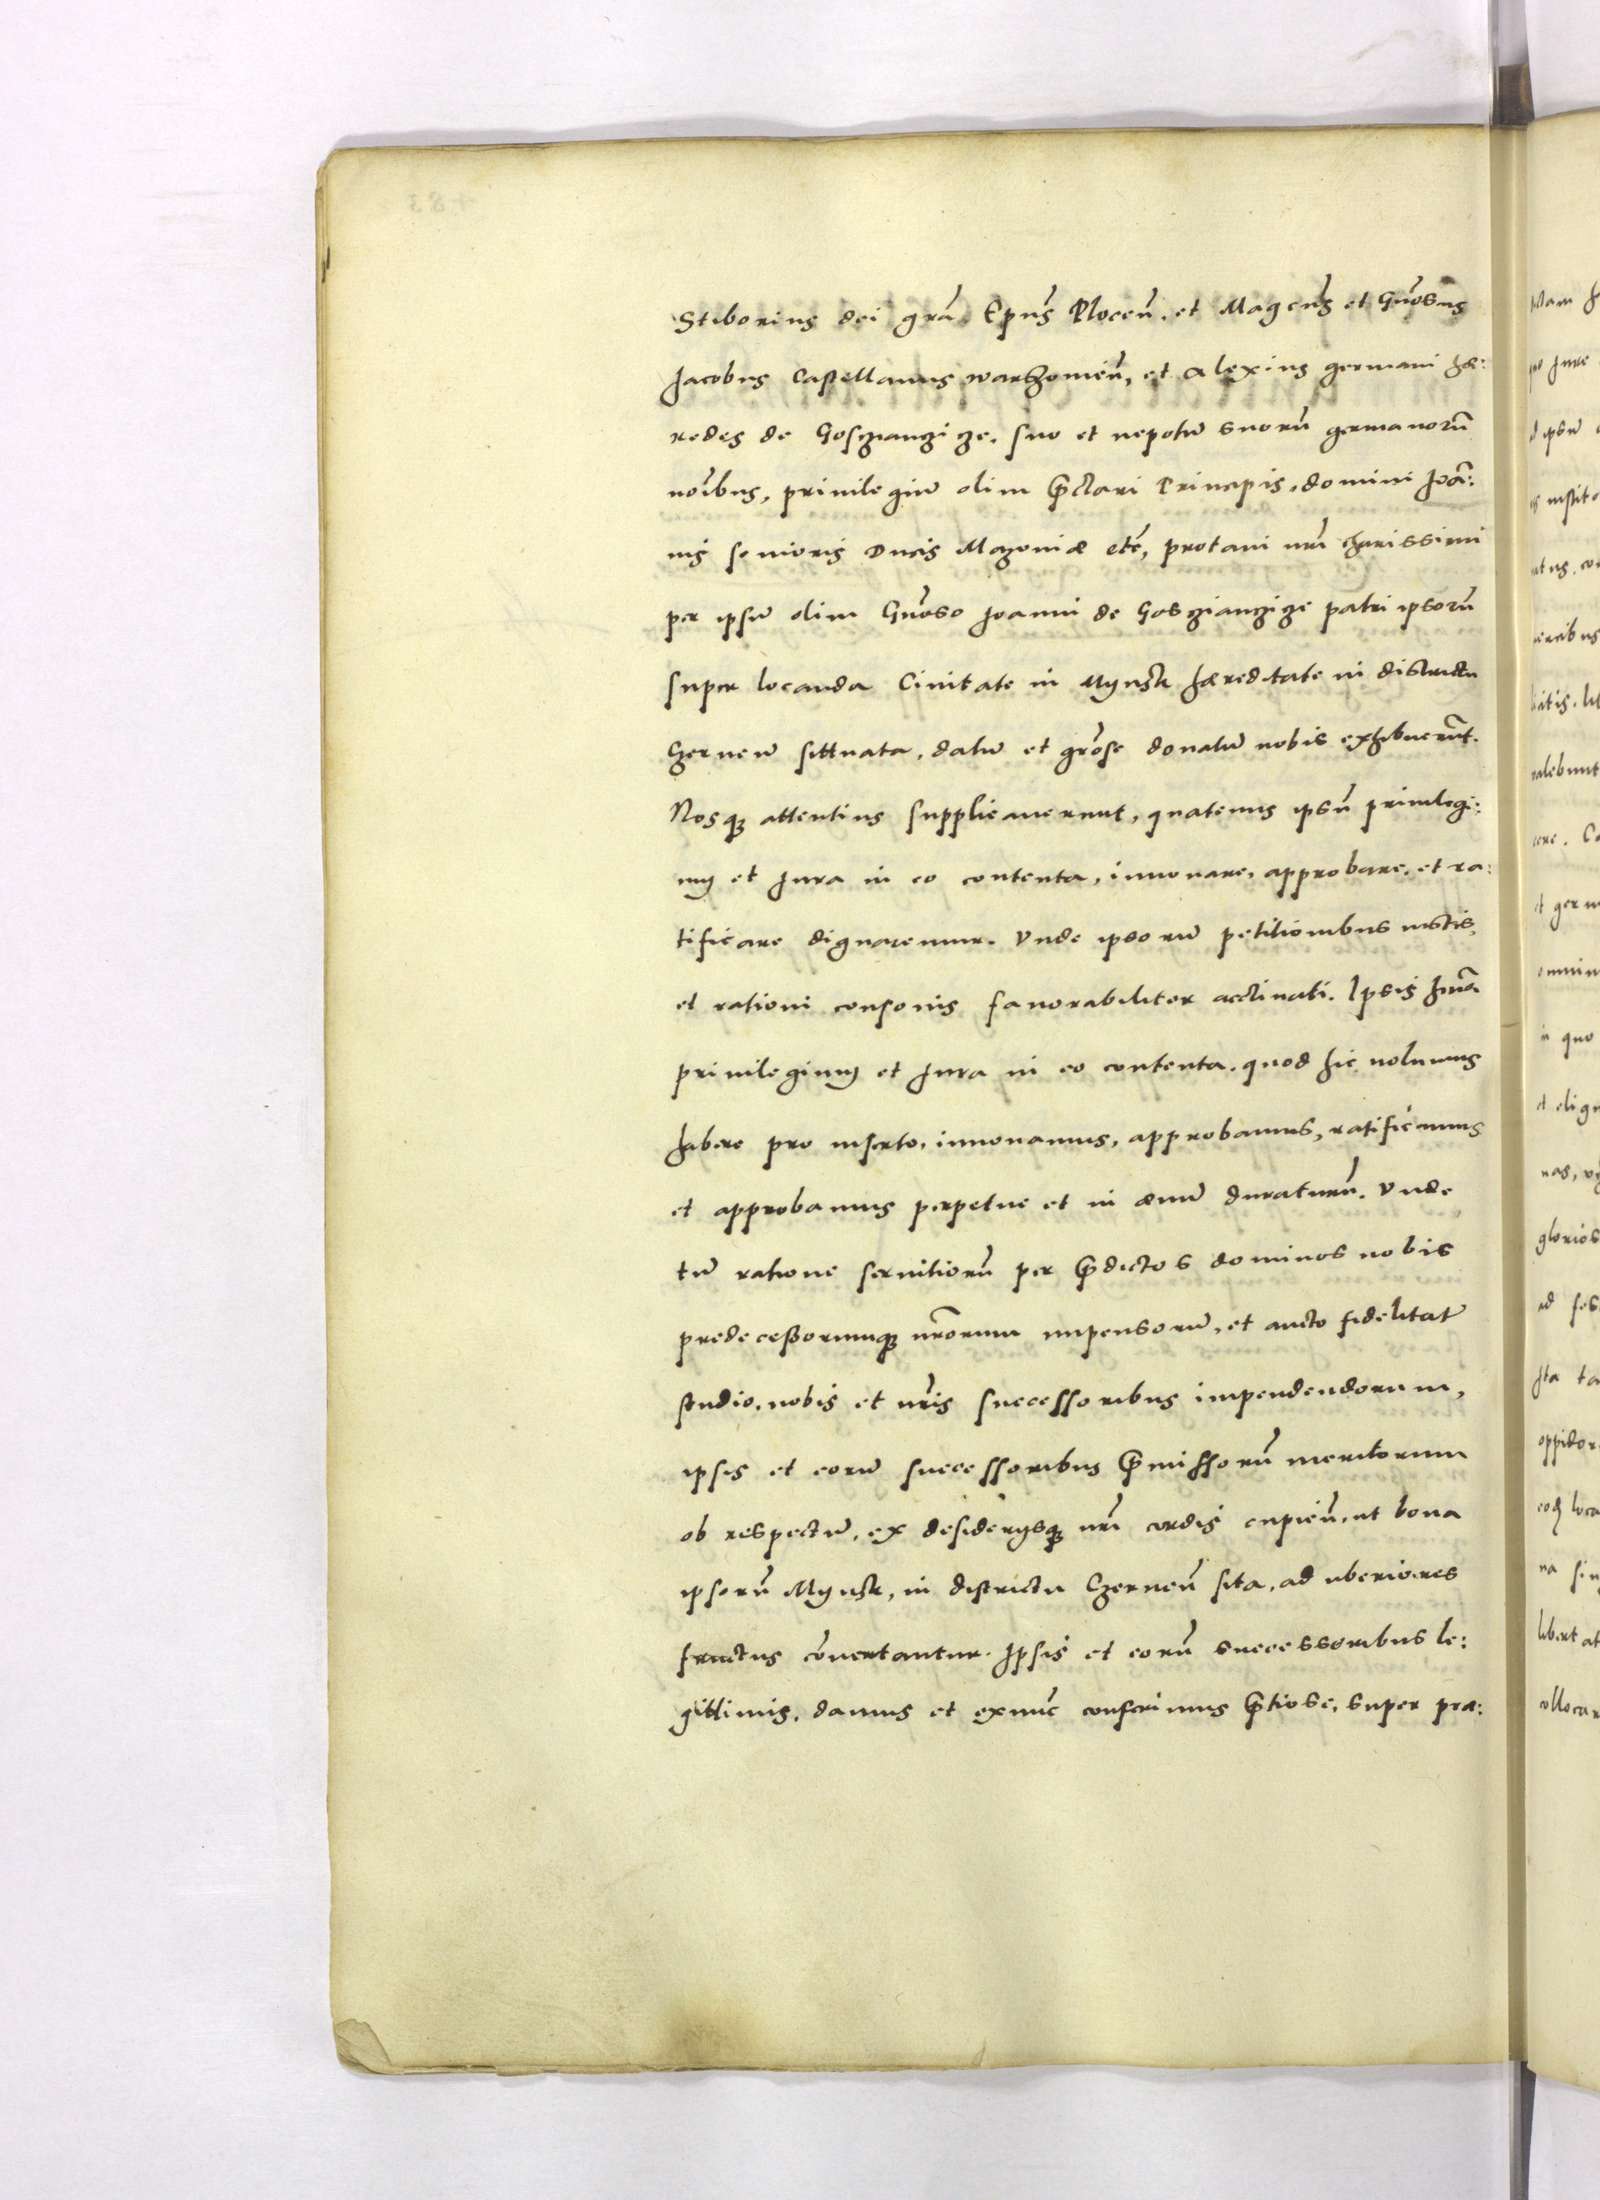 Stiborius dei grã. Epũs Plocen̄. et Magcũs et Gñosus
Jacobus Castellanus warzonien̄, et Alexius germani hæ:
redes de Goschiancziᴄze. suo et nepotũ suorũ germanorũ
noĩbus, priuilegiũ olim p̄clari Principis, domini Joã:
nis senioris Ducis Mazoniæ etc̃, protaui nr̃i charissimi
per ipsũ olim Gñoso Joanni de Gosczianczicze patri ipsorũ
super locanda Ciuitate in Mynsk hæreditate in districtu
Czernen̄ sittuata, datũ et grõse donatũ nobis exhibuerũt.
Nosq3 attentius supplicauerunt, quatenus ipsũ priuilegi:
um et Jura in eo contenta, innouare, approbare, et ra:
tificare dignaremur. Vnde ipsorũ petitionibus iustis,
et rationi consonis fauorabiliter acclinati. Ipsis
priuilegium et Jura in eo contenta. quod hic volumus
habere pro inserto, innouamus, approbamus, ratificamus
et approbamus perpetue et in æuũ duraturũ. Vnde
tũ ratione seruitiorũ per p̄dictos dominos nobis
predecessorumq3 nr̃orum impensorũ, et aucto fidelitat̃
studio, nobis et nr̃is successoribus impendendorum,
ipsis et eorũ successoribus p̄missorũ meritorum
ob respectũ, ex desiderijsq3 nr̃i cordis cupien̄, ut bona
ipsorũ Mynsk, in districtu Czernen̄ sita, ad uberiores
fructus cõuertantur. Ipsis et eorũ successoribus le:
gittimis, damus et exnũc conferimus g̃tiose, super præ: